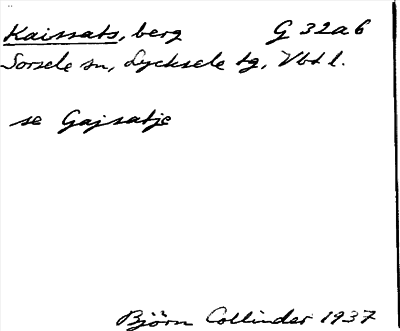 Kaissats, berg G 32a6
Sorsele sn, Lycksele tg, Vbtl.
se Gajsatje
Björn Collinder 1937